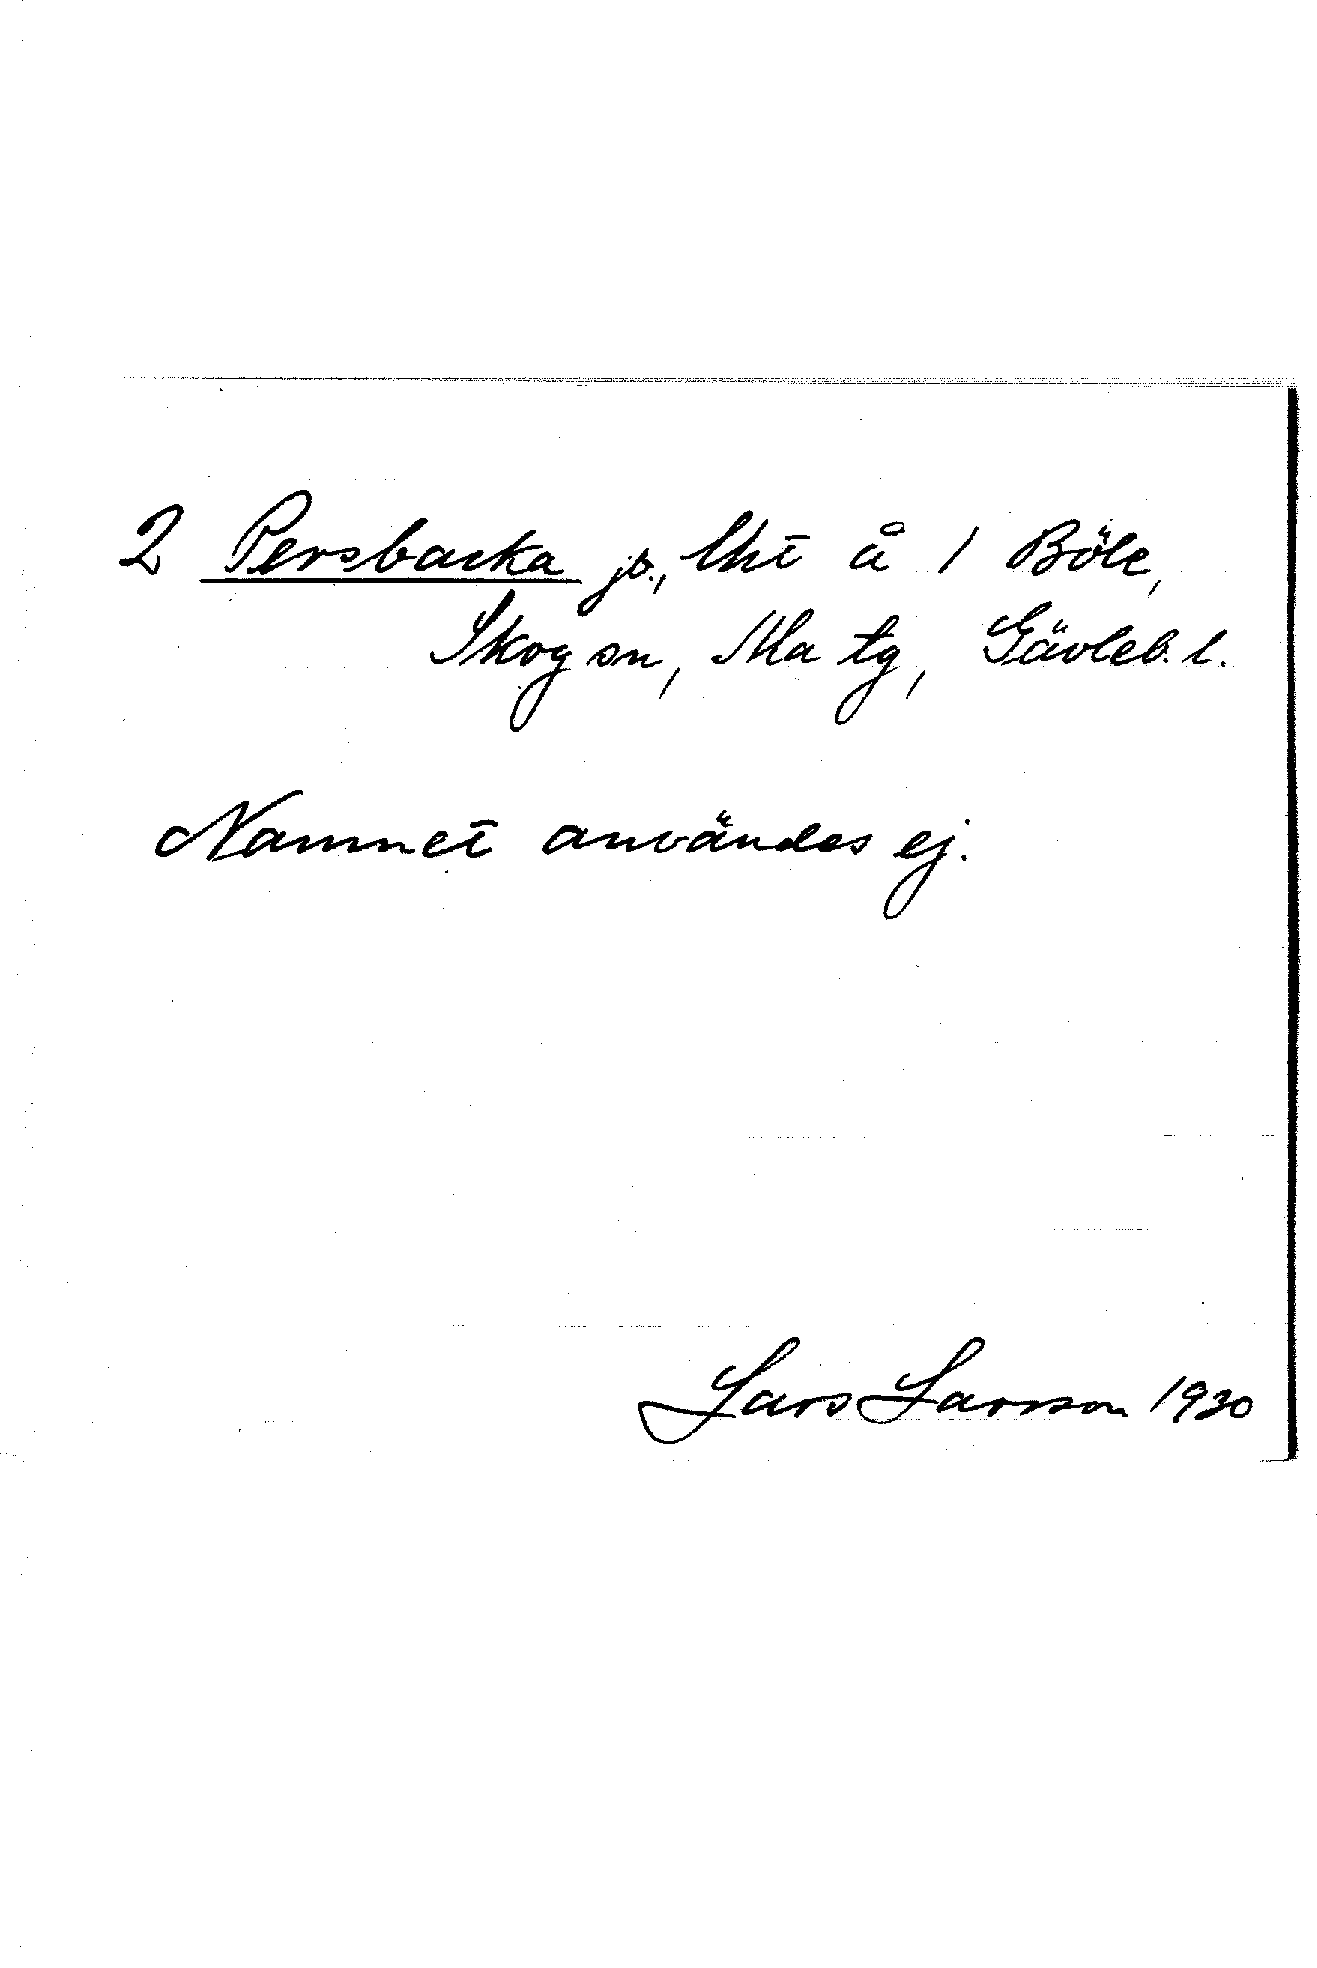 2 Persbacka js., lht å 1 Böle,
Skog sn, Ala tg, Gävleb. l.
Namnet användes ej.
Lars Larsson 1930